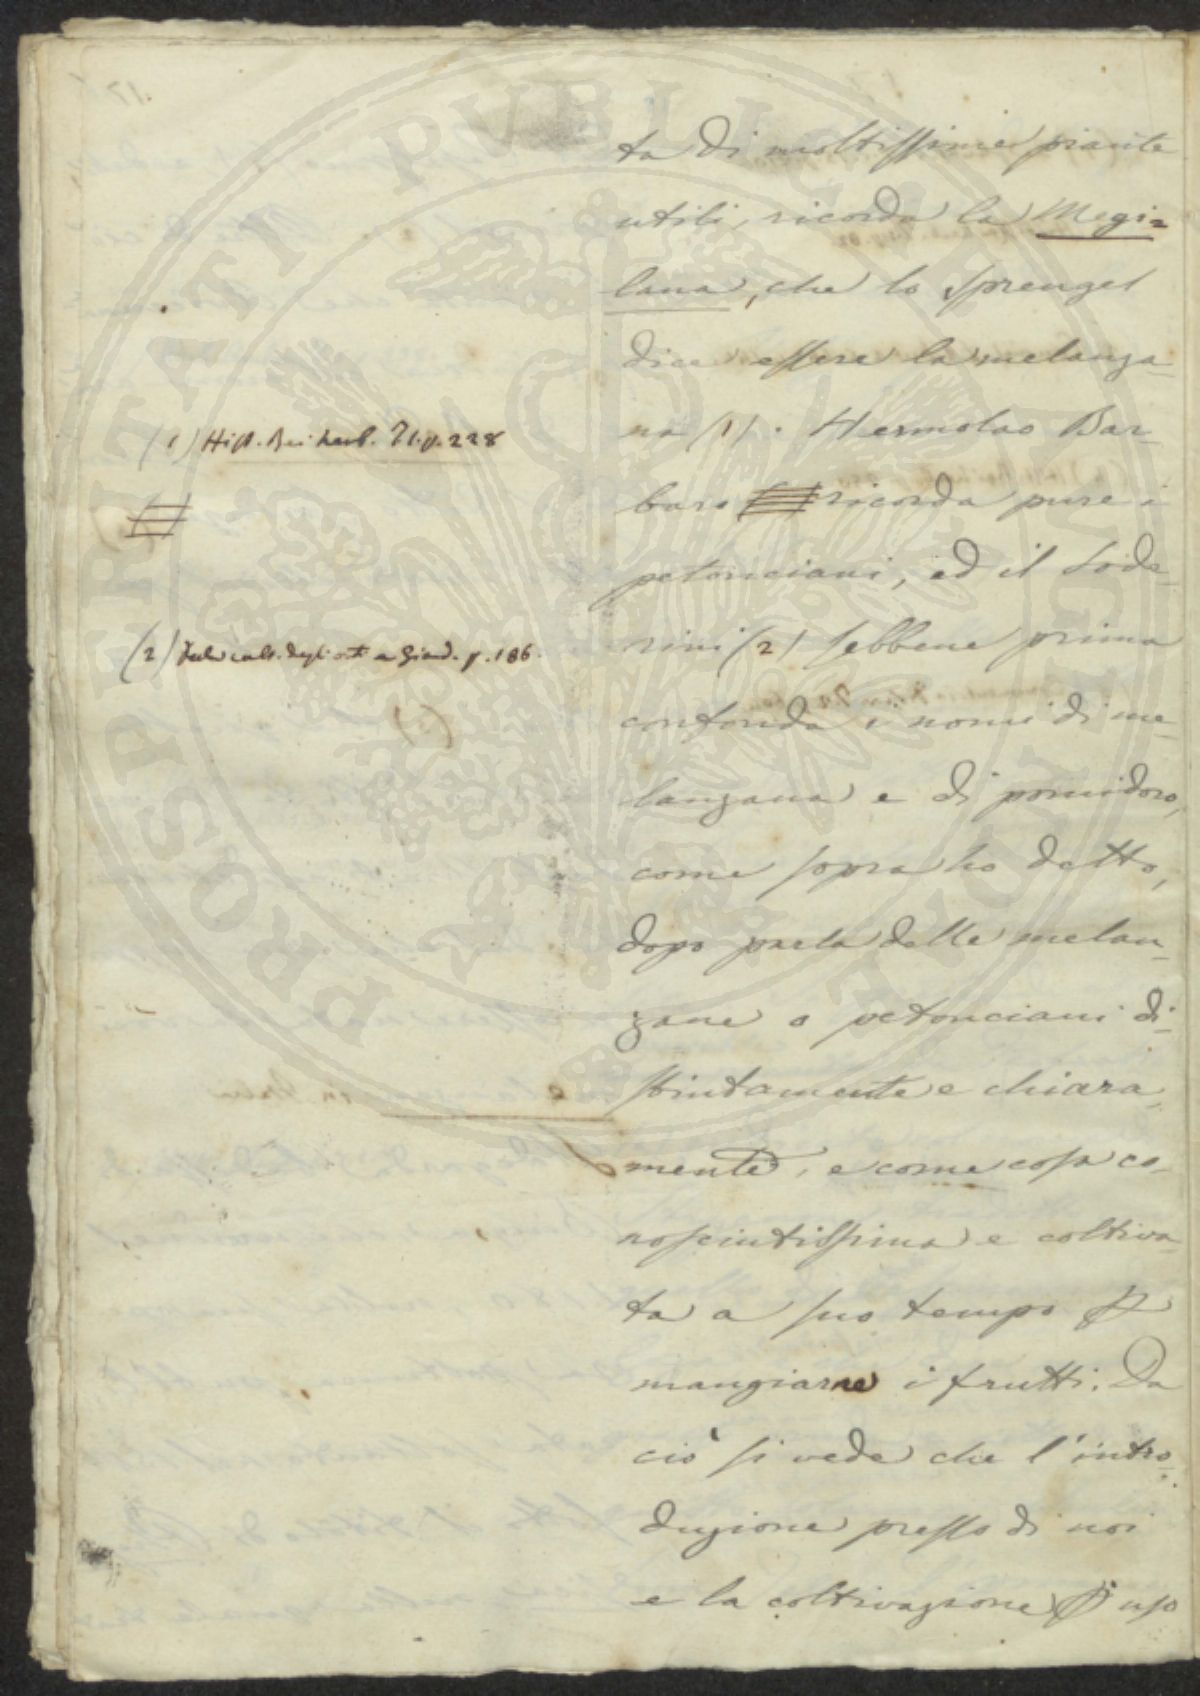 ta di moltissime piante
utili, ricorda la Megi=
lana, che lo Sprengel
dice essere la melanza-
na (1). Hermolao Bar-
baro ricorda pure i
petonciani, ed il Sode-
rini (2) sebbene prima
confonda i nomi di me-
lanzana e di pomidoro,
come sopra ho detto,
dopo parla delle melan-
zane o petonciani di-
stintamente e chiara-
mente, e come cosa co-
nosciutissima e coltiva-
ta a suo tempo P
mangiarne i frutti. Da
ciò si vede che l'intro-
duzione presso di noi
e la coltivazione P uso
(1) Hist. Rei herb. T1. p. 228
(2) cult. degli orti e Giard. p. 186.
PROSPERITATI PUBLICAE AUGENDAE